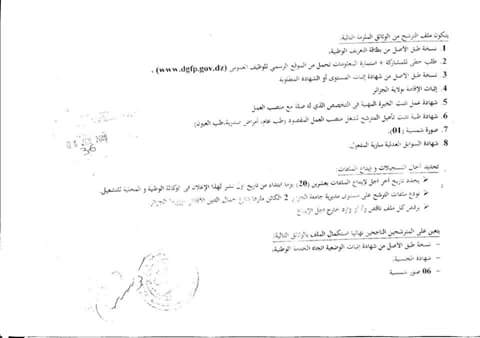 يتكون ملف الترشح من الوثائق الملزمة التالية:
1. نسخة طبق الأصل من بطاقة التعريف الوطنية.
2. طلب خطي للمشاركة + استمارة المعلومات تحمل من الموقع الرسمي للوظيف العمومي (www.dgfp.gov.dz) .
3. نسخة طبق الأصل من شهادة إثبات المستوى أو الشهادة المطلوبة
4. إثبات الإقامة بولاية الجزائر
5. شهادة عمل تثبت الخبرة المهنية في التخصص الذي له صلة مع منصب العمل
6. شهادة طبية تثبت تأهيل المترشح لشغل منصب العمل المقصود (طب عام، أمراض صدرية، طب العيون)
7. صورة شمسية (01).
8. شهادة السوابق العدلية سارية المفعول.
تحديد آجال التسجيلات و إيداع الملفات:
يحدد تاريخ آخر أجل لإيداع الملفات بعشرين (20) يوما ابتداء من تاريخ أول نشر لهذا الإعلان في الوكالة الوطنية و المحلية للتشغيل.
تودع ملفات الترشح على مستوى مديرية جامعة الجزائر 2 الكائن مقرها شارع جمال الدين الأفغاني الجزائر
يرفض كل ملف ناقص و/ أو وارد خارج أجل الإيداع
يتعين على المترشحين الناجحين نهائيا استكمال الملف بالوثائق التالية:
– نسخة طبق الأصل من شهادة إثبات الوضعية اتجاه الخدمة الوطنية.
– شهادة الجنسية.
– 06 صور شمسية